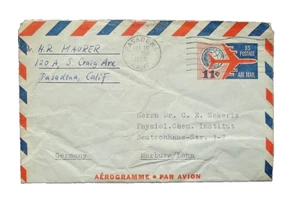 H.R MAURER
120 A, S. Craig Ave
Pasadena, Calif
US
POSTAGE
11¢
AIR MAIL
Herrn Dr. C. E.
Physiol.Chem. Institut
Deutschhaus-Str. 1-2
Germany
Marburg/Lahn
AÉROGRAMME • PAR AVION